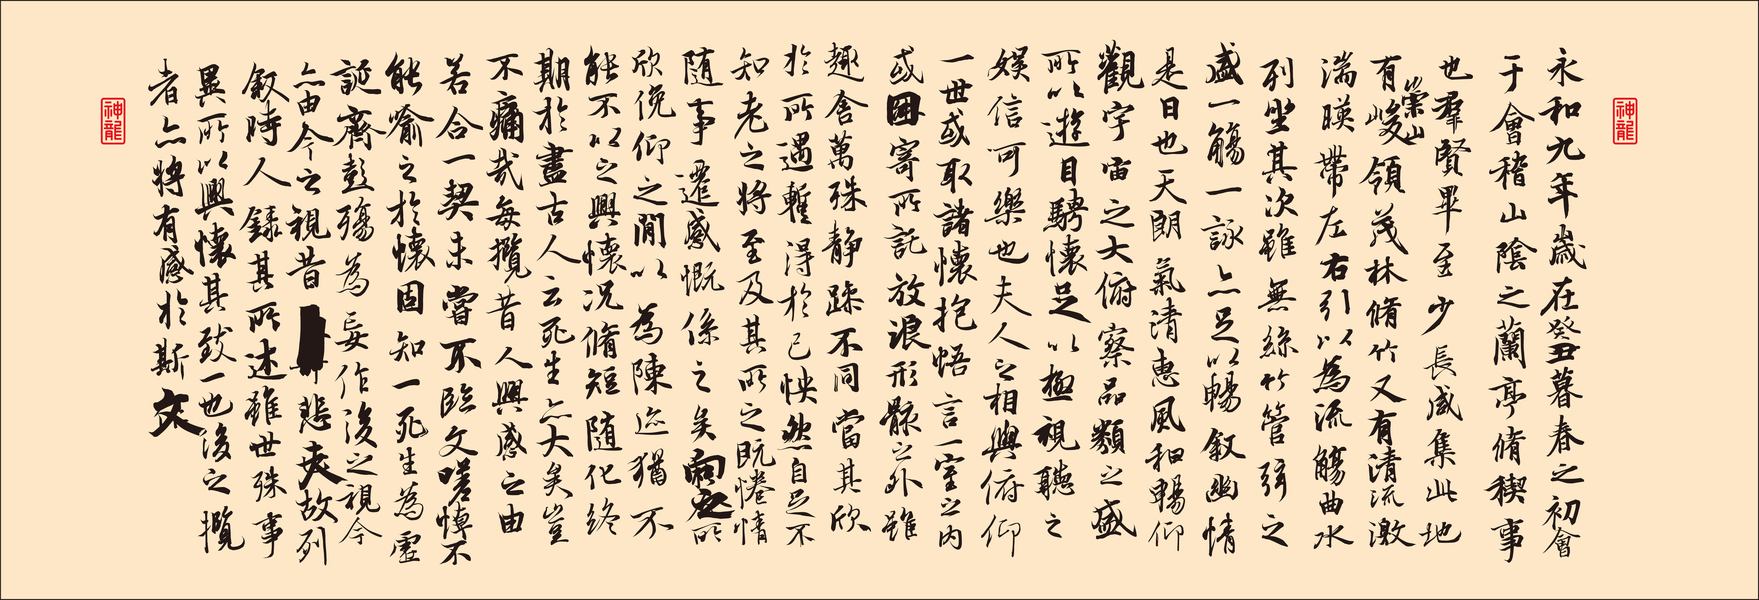 神龍
永和九年歲在癸丑暮春之初會
于會稽山陰之蘭亭脩稧事
也羣賢畢至少長咸集此地
有崇山峻領茂林脩竹又有清流激
湍暎帶左右引以為流觴曲水
列坐其次雖無絲竹管弦之
盛一觴一詠亦足以暢叙幽情
是日也天朗氣清惠風和暢仰
觀宇宙之大俯察品類之盛
所以遊目騁懷足以極視聽之
娛信可樂也夫人之相與俯仰
一世或取諸懷抱悟言一室之內
或因寄所託放浪形骸之外雖
趣舍萬殊靜躁不同當其欣
於所遇暫得於己怏然自足不
知老之將至及其所之既惓情
隨事遷感慨係之矣向之所
欣俛仰之閒以為陳迹猶不
能不以之興懷況脩短隨化終
期於盡古人云死生亦大矣豈
不痛哉每攬昔人興感之由
若合一契未嘗不臨文嗟悼不
能喻之於懷固知一死生為虛
誕齊彭殤為妄作後之視今
亦由今之視昔悲夫故列
叙時人錄其所述雖世殊事
異所以興懷其致一也後之攬
者亦將有感於斯文
神龍